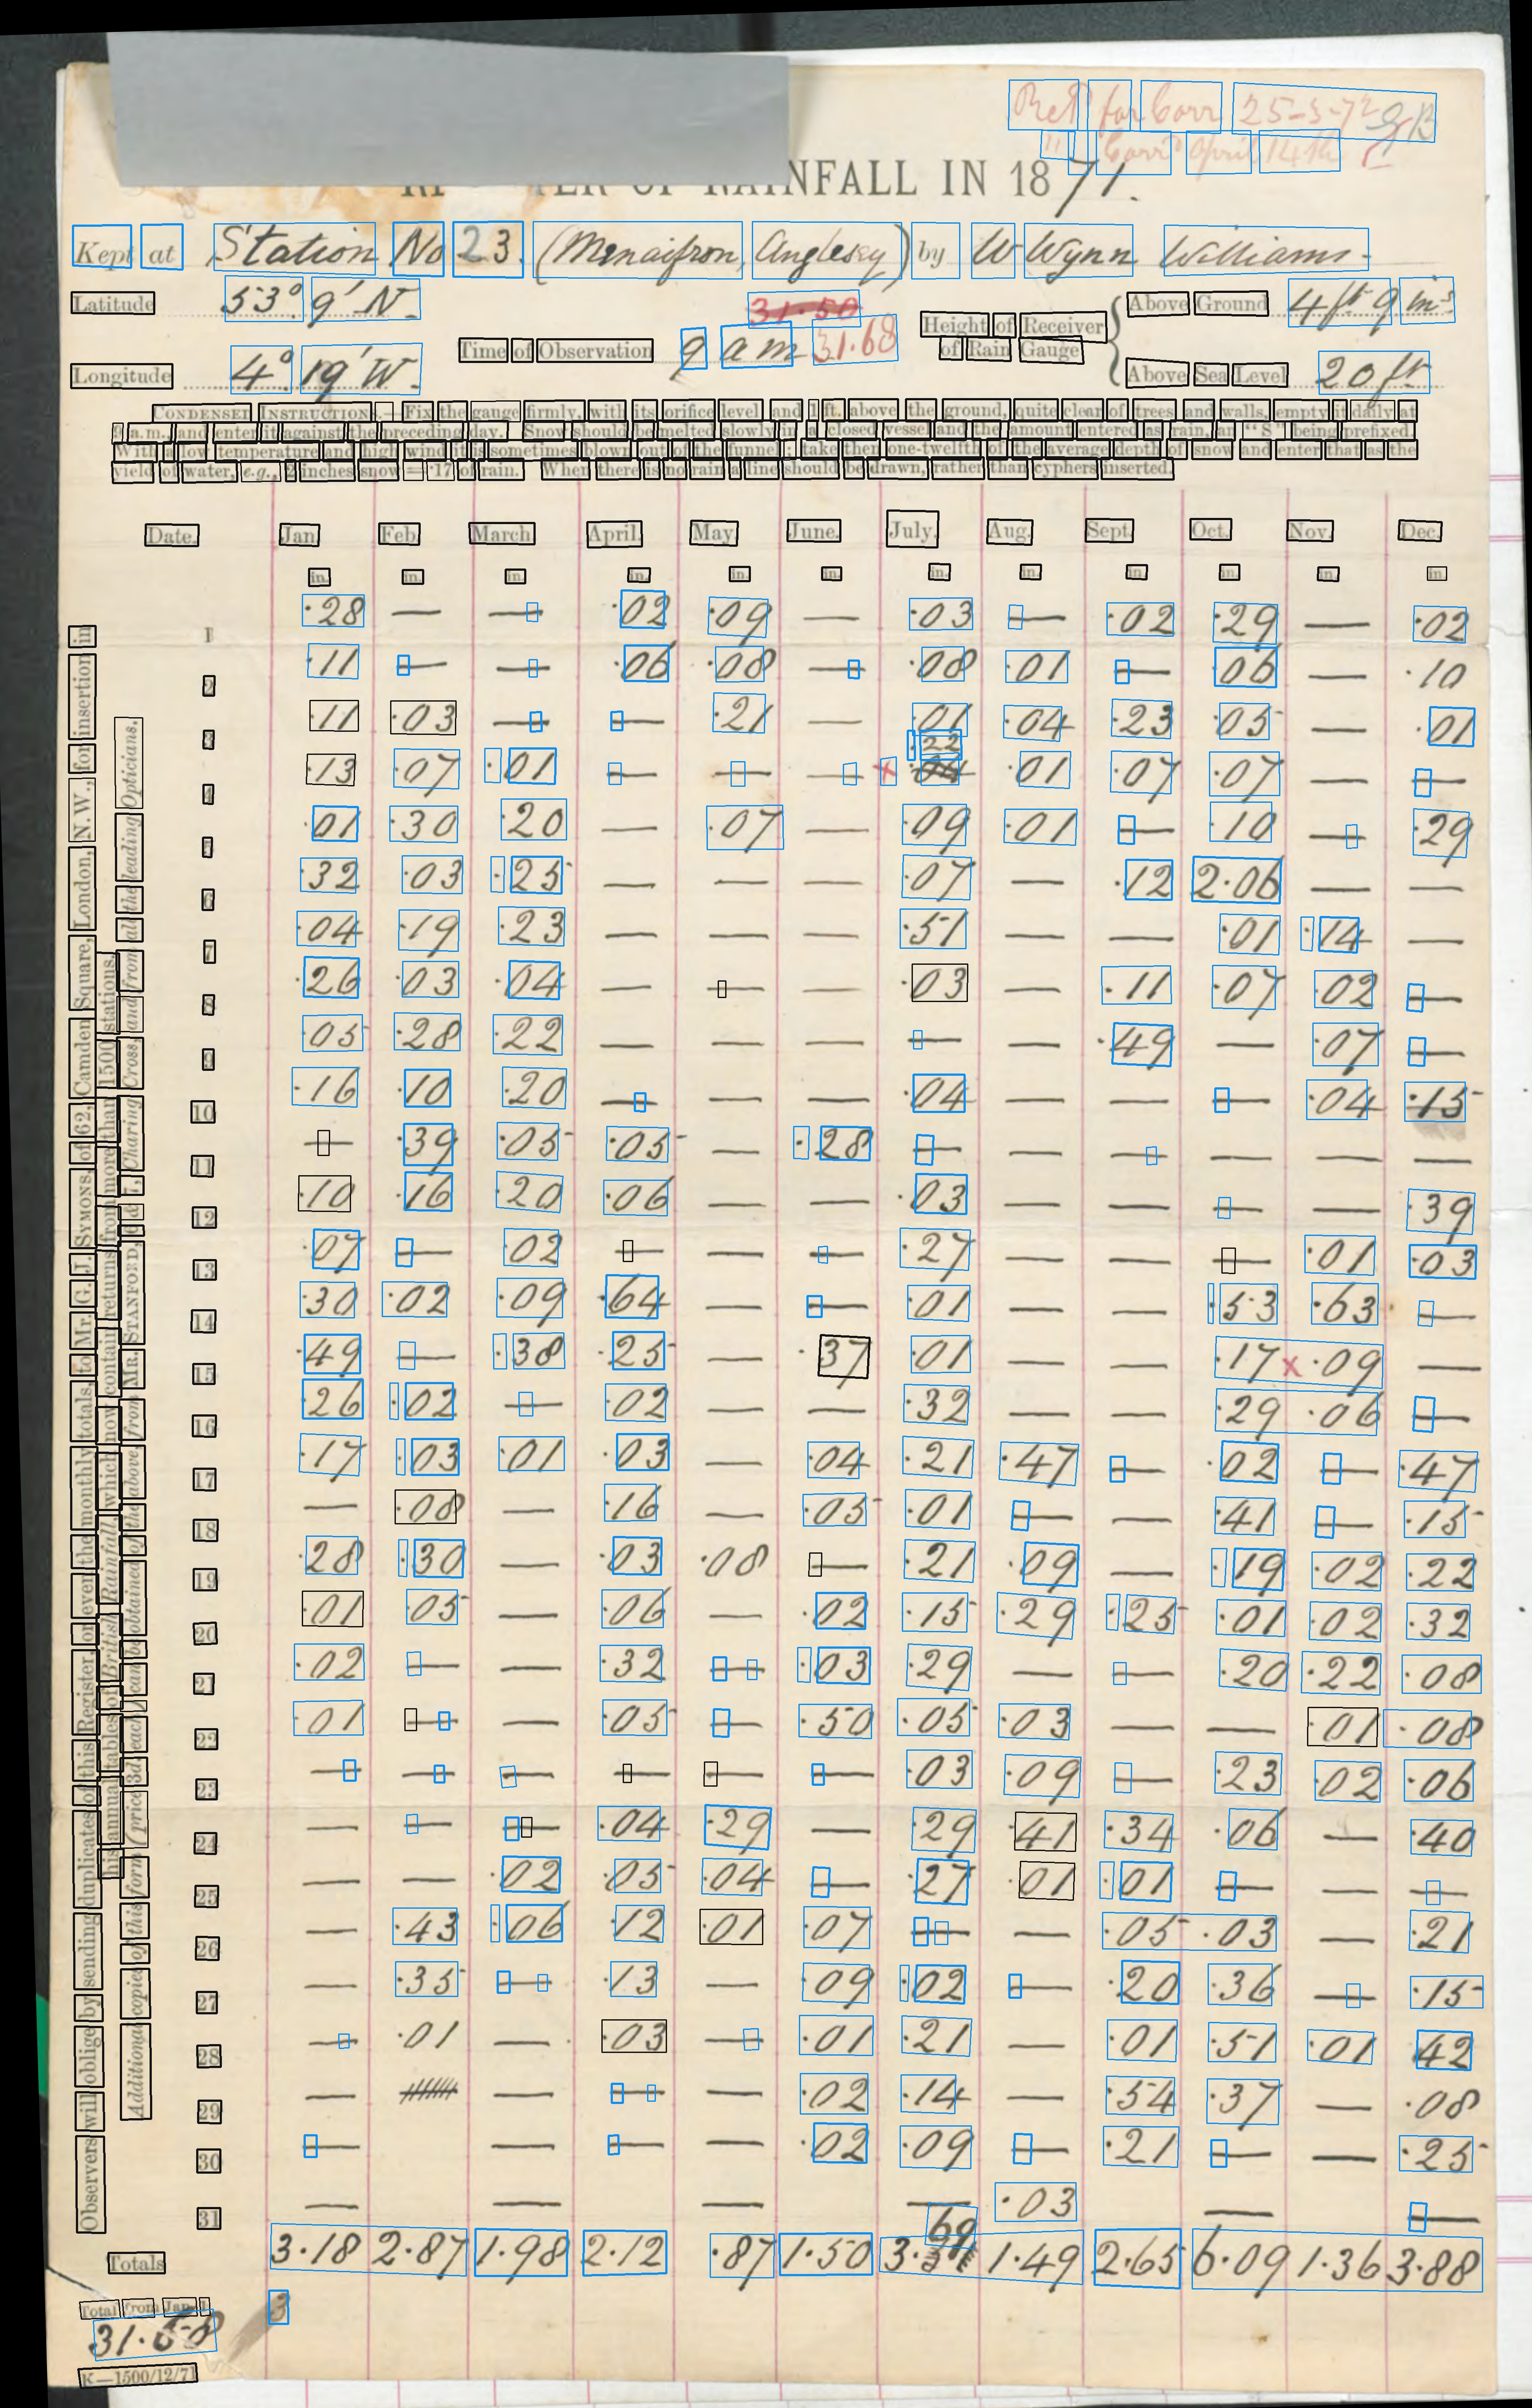 Ret for Corr 25-3-72 GB
" Corrd April 14th
RAINFALL IN 1871.
Kept at Station No 23. (Menaifron, Anglesey) by W Wynn Williams.
Latitude 53° 9' N. 31.50 Above Ground 4 ft 9 ins
Time of Observation 9 am 31.68 Height of Receiver of Rain Gauge
Longitude 4° 19' W. Above Sea Level 20 ft
CONDENSED INSTRUCTIONS.—Fix the gauge firmly, with its orifice level and 1 ft. above the ground, quite clear of trees and walls, empty it daily at
9 a.m., and enter it against the preceding day. Snow should be melted slowly in a closed vessel and the amount entered as rain, an "S" being prefixed.
With a low temperature and high wind it is sometimes blown out of the funnel; take then one-twelfth of the average depth of snow and enter that as the
yield of water, e.g., 2 inches snow = ·17 of rain. When there is no rain a line should be drawn, rather than cyphers inserted.
Date. Jan. Feb. March. April. May. June. July. Aug. Sept. Oct. Nov. Dec.
in. in. in. in. in. in. in. in. in. in. in. in.
1 ·28 — — ·02 ·09 — ·03 — ·02 ·29 — ·02
2 ·11 — — ·06 ·08 — ·08 ·01 — ·06 — ·10
3 ·11 ·03 — — ·21 — ·01 ·04 ·23 ·05 — ·01
4 ·13 ·07 ·01 — — — x ·22 ·01 ·07 ·07 — —
5 ·01 ·30 ·20 — ·07 — ·09 ·01 — ·10 — ·29
6 ·32 ·03 ·25 — — — ·07 — ·12 2·06 — —
7 ·04 ·19 ·23 — — — ·51 — — ·01 ·14 —
8 ·26 ·03 ·04 — — — ·03 — ·11 ·07 ·02 —
9 ·05 ·28 ·22 — — — — — ·49 — ·07 —
10 ·16 ·10 ·20 — — — ·04 — — — ·04 ·15
11 — ·39 ·05 ·05 — ·28 — — — — — —
12 ·10 ·16 ·20 ·06 — — ·03 — — — — ·39
13 ·07 — ·02 — — — ·27 — — — ·01 ·03
14 ·30 ·02 ·09 ·64 — — ·01 — — ·53 ·63 —
15 ·49 — ·38 ·25 — ·37 ·01 — — ·17 x ·09 —
16 ·26 ·02 — ·02 — — ·32 — — ·29 ·06 —
17 ·17 ·03 ·01 ·03 — ·04 ·21 ·47 — ·02 — ·47
18 — ·08 — ·16 — ·05 ·01 — — ·41 — ·15
19 ·28 ·30 — ·03 ·08 — ·21 ·09 — ·19 ·02 ·22
20 ·01 ·05 — ·06 — ·02 ·15 ·29 ·25 ·01 ·02 ·32
21 ·02 — — ·32 — ·03 ·29 — — ·20 ·22 ·08
22 ·01 — — ·05 — ·50 ·05 ·03 — — ·01 ·08
23 — — — — — — ·03 ·09 — ·23 ·02 ·06
24 — — — ·04 ·29 — ·29 ·41 ·34 ·06 — ·40
25 — — ·02 ·05 ·04 — ·27 ·01 ·01 — — —
26 — ·43 ·06 ·12 ·01 ·07 — — ·05 ·03 — ·21
27 — ·35 — ·13 — ·09 ·02 — ·20 ·36 — ·15
28 — ·01 — ·03 — ·01 ·21 — ·01 ·51 ·01 ·42
29 — — — — ·02 ·14 — ·54 ·37 — ·08
30 — — — — ·02 ·09 — ·21 — — ·25
31 — — — — ·03 — —
Totals 3·18 2·87 1·98 2·12 ·87 1·50 3·69 1·49 2·65 6·09 1·36 3·88
Total from Jan. 1
31·58
3
K—1500/12/71
Observers will oblige by sending duplicates of this Register, or even the monthly totals, to Mr. G. J. SYMONS, of 62, Camden Square, London, N.W., for insertion in
his annual tables of British Rainfall, which now contain returns from more than 1500 stations.
Additional copies of this form (price 3d. each) can be obtained of the above, from Mr. STANFORD, 6 & 7, Charing Cross, and from all the leading Opticians.